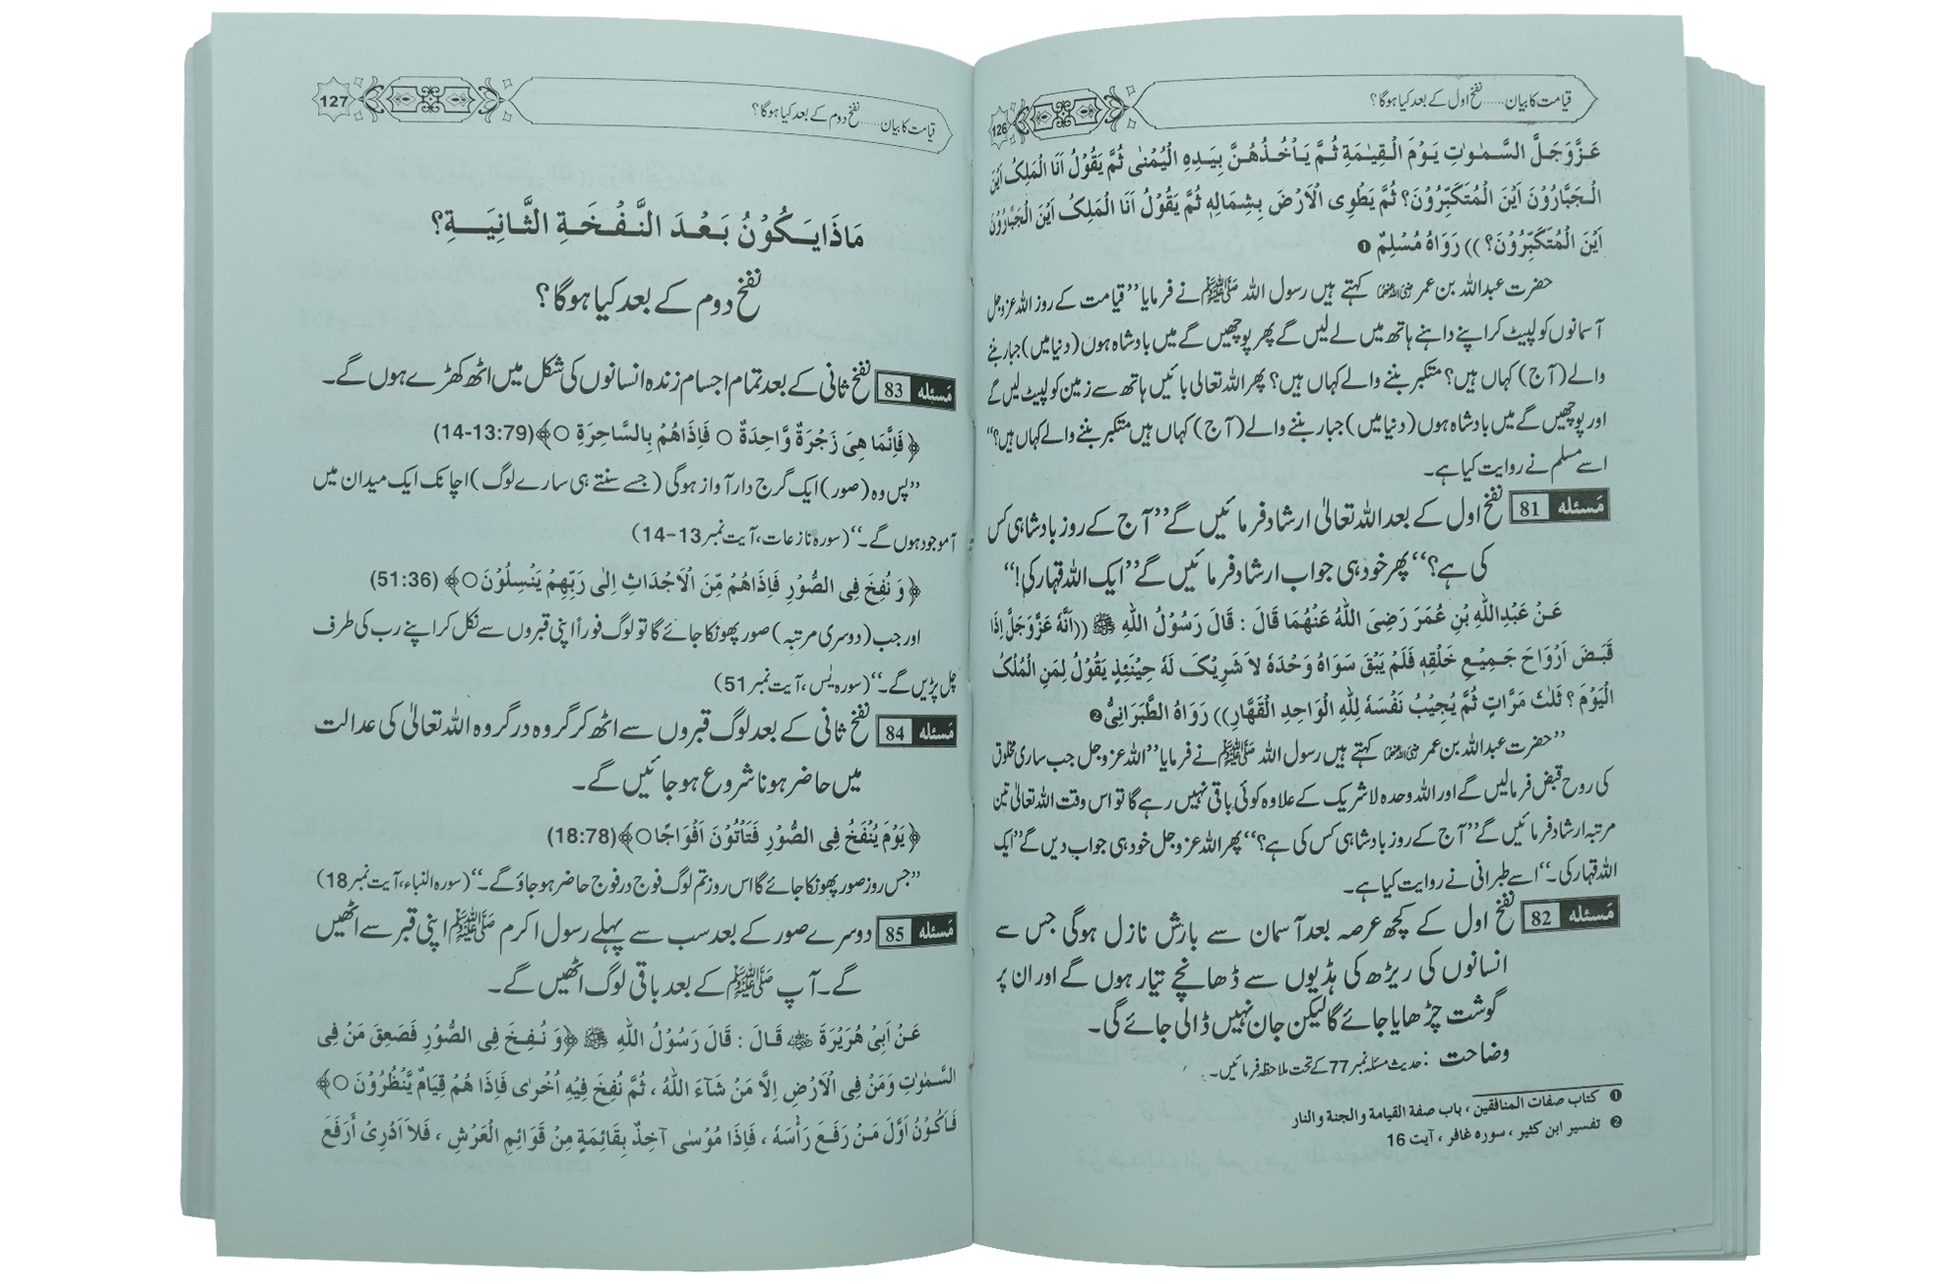 قیامت کا بیان...... نفخ اول کے بعد کیا ہوگا؟
126
عَزَّوَجَلَّ السَّمٰوٰتِ یَوْمَ الْقِیٰمَةِ ثُمَّ یَاْخُذُهُنَّ بِیَدِهِ الْیُمْنٰی ثُمَّ یَقُوْلُ اَنَا الْمَلِکُ اَیْنَ
الْجَبَّارُوْنَ اَیْنَ الْمُتَکَبِّرُوْنَ؟ ثُمَّ یَطْوِی الْاَرْضَ بِشِمَالِهٖ ثُمَّ یَقُوْلُ اَنَا الْمَلِکُ اَیْنَ الْجَبَّارُوْنَ
اَیْنَ الْمُتَکَبِّرُوْنَ؟)) رَوَاهُ مُسْلِمٌ ❶
حضرت عبداللہ بن عمر رضی اللہ عنہما کہتے ہیں رسول اللہ ﷺ نے فرمایا ’’قیامت کے روز اللہ عزوجل
آسمانوں کو لپیٹ کر اپنے داہنے ہاتھ میں لے لیں گے پھر پوچھیں گے میں بادشاہ ہوں (دنیا میں) جبار بننے
والے (آج) کہاں ہیں؟ متکبر بننے والے کہاں ہیں؟ پھر اللہ تعالی بائیں ہاتھ سے زمین کو لپیٹ لیں گے
اور پوچھیں گے میں بادشاہ ہوں (دنیا میں) جبار بننے والے (آج) کہاں ہیں متکبر بننے والے کہاں ہیں؟‘‘
اسے مسلم نے روایت کیا ہے۔
مَسئله 81 نفخ اول کے بعد اللہ تعالیٰ ارشاد فرمائیں گے ’’آج کے روز بادشاہی کس
کی ہے؟‘‘ پھر خود ہی جواب ارشاد فرمائیں گے ’’ایک اللہ قہار کی!‘‘
عَنْ عَبْدِاللّٰهِ بْنِ عُمَرَ رَضِیَ اللّٰهُ عَنْهُمَا قَالَ : قَالَ رَسُوْلُ اللّٰهِ ﷺ ((اَنَّهٗ عَزَّوَجَلَّ اِذَا
قَبَضَ اَرْوَاحَ جَمِیْعِ خَلْقِهٖ فَلَمْ یَبْقَ سَوَاهُ وَحْدَهٗ لاَ شَرِیْکَ لَهٗ حِیْنَئِذٍ یَقُوْلُ لِمَنِ الْمُلْکُ
الْیَوْمَ؟ ثَلٰثَ مَرَّاتٍ ثُمَّ یُجِیْبُ نَفْسَهٗ لِلّٰهِ الْوَاحِدِ الْقَهَّارِ)) رَوَاهُ الطَّبَرَانِیُّ ❷
’’حضرت عبداللہ بن عمر رضی اللہ عنہما کہتے ہیں رسول اللہ ﷺ نے فرمایا ’’اللہ عزوجل جب ساری مخلوق
کی روح قبض فرمالیں گے اور اللہ وحدہ لاشریک کے علاوہ کوئی باقی نہیں رہے گا تو اس وقت اللہ تعالیٰ تین
مرتبہ ارشاد فرمائیں گے ’’آج کے روز بادشاہی کس کی ہے؟‘‘ پھر اللہ عزوجل خود ہی جواب دیں گے ’’ایک
اللہ قہار کی۔‘‘ اسے طبرانی نے روایت کیا ہے۔
مَسئله 82 نفخ اول کے کچھ عرصہ بعد آسمان سے بارش نازل ہوگی جس سے
انسانوں کی ریڑھ کی ہڈیوں سے ڈھانچے تیار ہوں گے اور ان پر
گوشت چڑھایا جائے گا لیکن جان نہیں ڈالی جائے گی۔
وضاحت : حدیث مسئلہ نمبر 77 کے تحت ملاحظہ فرمائیں۔
❶ کتاب صفات المنافقین ، باب صفة القیامة والجنة والنار
❷ تفسیر ابن کثیر ، سورہ غافر ، آیت 16
قیامت کا بیان...... نفخ دوم کے بعد کیا ہوگا؟
127
مَاذَا یَکُوْنُ بَعْدَ النَّفْخَةِ الثَّانِیَةِ؟
نفخ دوم کے بعد کیا ہوگا؟
مَسئله 83 نفخ ثانی کے بعد تمام اجسام زندہ انسانوں کی شکل میں اٹھ کھڑے ہوں گے۔
﴿فَاِنَّمَا هِیَ زَجْرَةٌ وَّاحِدَةٌ ○ فَاِذَاهُمْ بِالسَّاحِرَةِ ○﴾(14-13:79)
’’پس وہ (صور) ایک گرج دار آواز ہوگی (جسے سنتے ہی سارے لوگ) اچانک ایک میدان میں
آموجود ہوں گے۔‘‘ (سورہ نازعات، آیت نمبر 13-14)
﴿وَ نُفِخَ فِی الصُّوْرِ فَاِذَاهُمْ مِّنَ الْاَجْدَاثِ اِلٰی رَبِّهِمْ یَنْسِلُوْنَ○﴾ (51:36)
اور جب (دوسری مرتبہ) صور پھونکا جائے گا تو لوگ فوراً اپنی قبروں سے نکل کر اپنے رب کی طرف
چل پڑیں گے۔‘‘ (سورہ یٰس، آیت نمبر 51)
مَسئله 84 نفخ ثانی کے بعد لوگ قبروں سے اٹھ کر گروہ در گروہ اللہ تعالیٰ کی عدالت
میں حاضر ہونا شروع ہو جائیں گے۔
﴿یَوْمَ یُنْفَخُ فِی الصُّوْرِ فَتَاْتُوْنَ اَفْوَاجًا○﴾(18:78)
’’جس روز صور پھونکا جائے گا اس روز تم لوگ فوج در فوج حاضر ہو جاؤ گے۔‘‘ (سورہ النباء، آیت نمبر 18)
مَسئله 85 دوسرے صور کے بعد سب سے پہلے رسول اکرم ﷺ اپنی قبر سے اٹھیں
گے۔ آپ ﷺ کے بعد باقی لوگ اٹھیں گے۔
عَنْ اَبِیْ هُرَیْرَةَ رضی اللہ عنہ قَالَ : قَالَ رَسُوْلُ اللّٰهِ ﷺ ﴿وَ نُفِخَ فِی الصُّوْرِ فَصَعِقَ مَنْ فِی
السَّمٰوٰتِ وَمَنْ فِی الْاَرْضِ اِلَّا مَنْ شَآءَ اللّٰهُ ، ثُمَّ نُفِخَ فِیْهِ اُخْرٰی فَاِذَا هُمْ قِیَامٌ یَّنْظُرُوْنَ ○﴾
فَاَکُوْنُ اَوَّلَ مَنْ رَفَعَ رَاْسَهٗ ، فَاِذَا مُوْسٰی آخِذٌ بِقَائِمَةٍ مِنْ قَوَائِمِ الْعَرْشِ ، فَلاَ اَدْرِیْ أَرَفَعَ